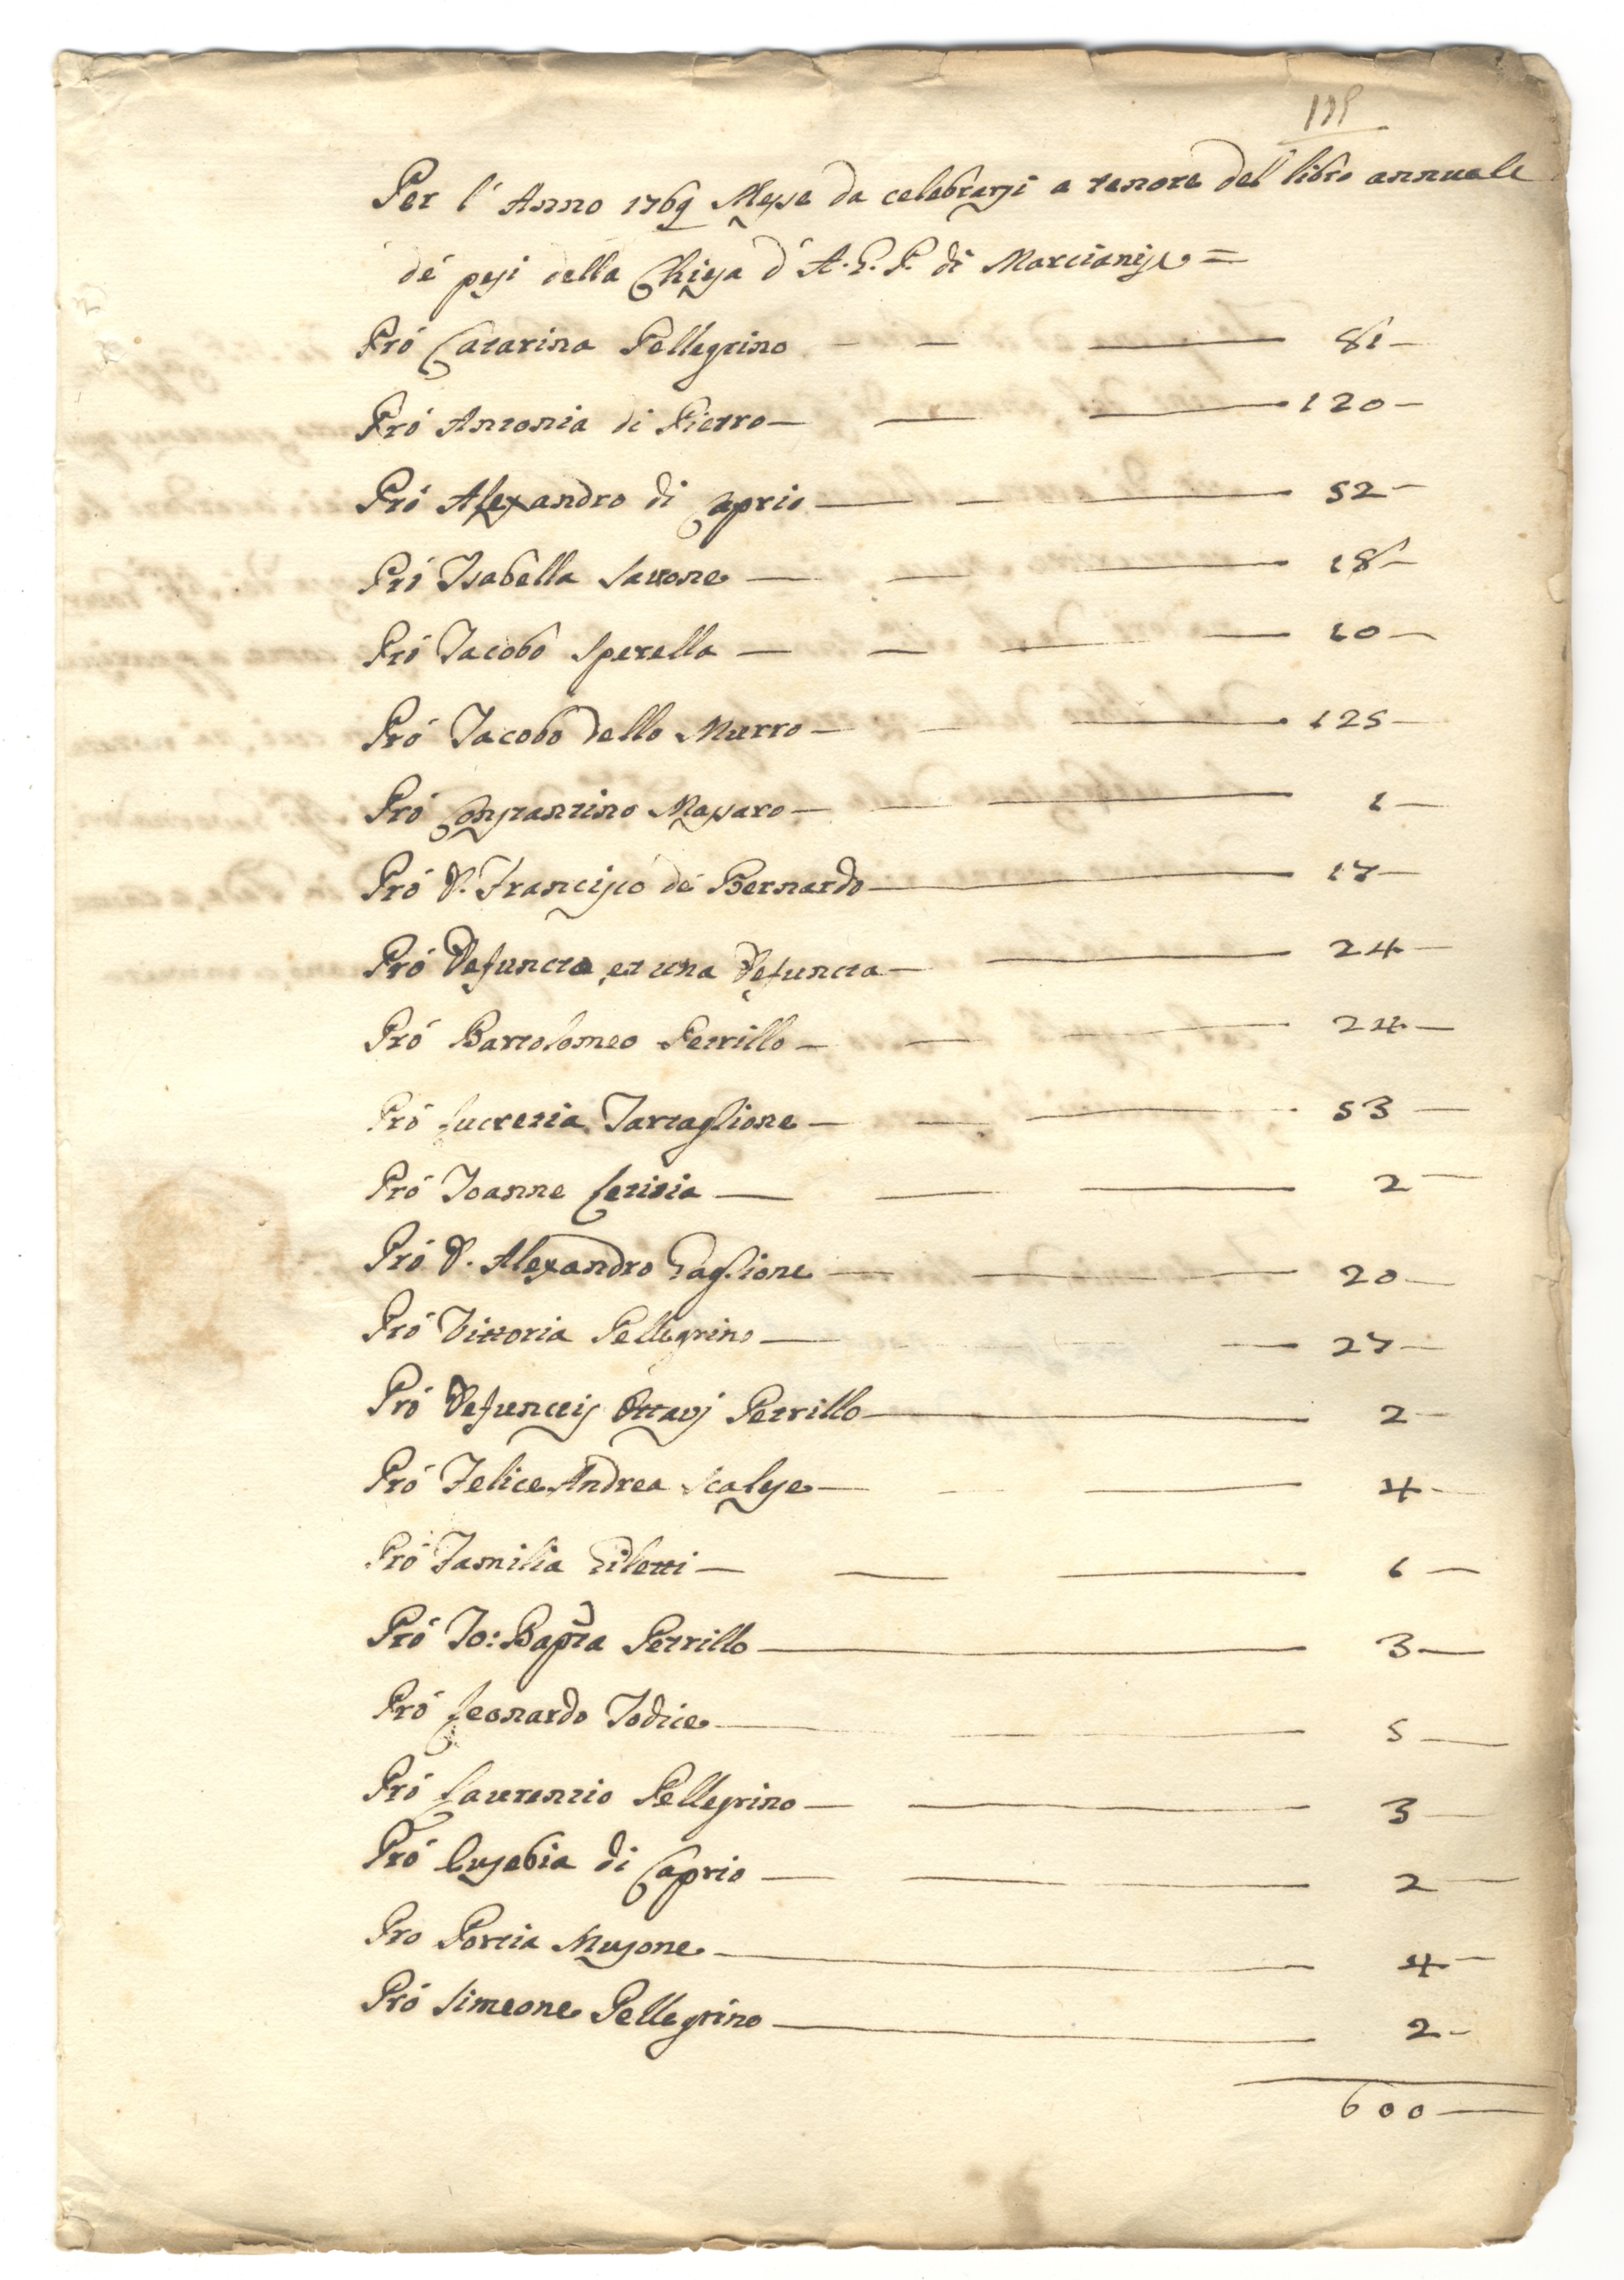 Per l' Anno 1769 Messe da celebrarsi a tenore del libro annuale
de' pesi della Chiesa d' A. G. P. di Marcianise =
Pró Catarina Pellegrino - - — 81 -
Pró Antonia di Pietro — — — 120 -
Pró Alexandro di Caprio — — — 52 -
Pró Isabella Savone — — — 18 -
Pró Jacobo Sperella — — — — 10 -
Pró Jacobo dello Murro — — — 125 -
Pró Constantino Massaro — — — 1 -
Pró D. Francisco de Bernardo — 17 -
Pró Defuncto et una Defuncta — — 24 -
Pró Bartolomeo Petrillo — — — 24 -
Pró Lucretia Tartaglione — — — 53 -
Pró Joanne Letizia — — — 2 -
Pró D. Alexandro Gaglione — — — 20 -
Pró Vittoria Pellegrino — — — 27 -
Pró Defunctis Ottavj Petrillo — 2 -
Pró Felice Andrea Scalse — — — 4 -
Pró Familia Giletti — — — 6 -
Pró Jo: Bapta Petrillo — 3 -
Pró Leonardo Jodice — — 5 -
Pró Laurentio Pellegrino — — 3 -
Pró Eusebia di Caprio — — — 2 -
Pro Portia Musone — — 4 -
Pró Simeone Pellegrino — 2 -
600 -